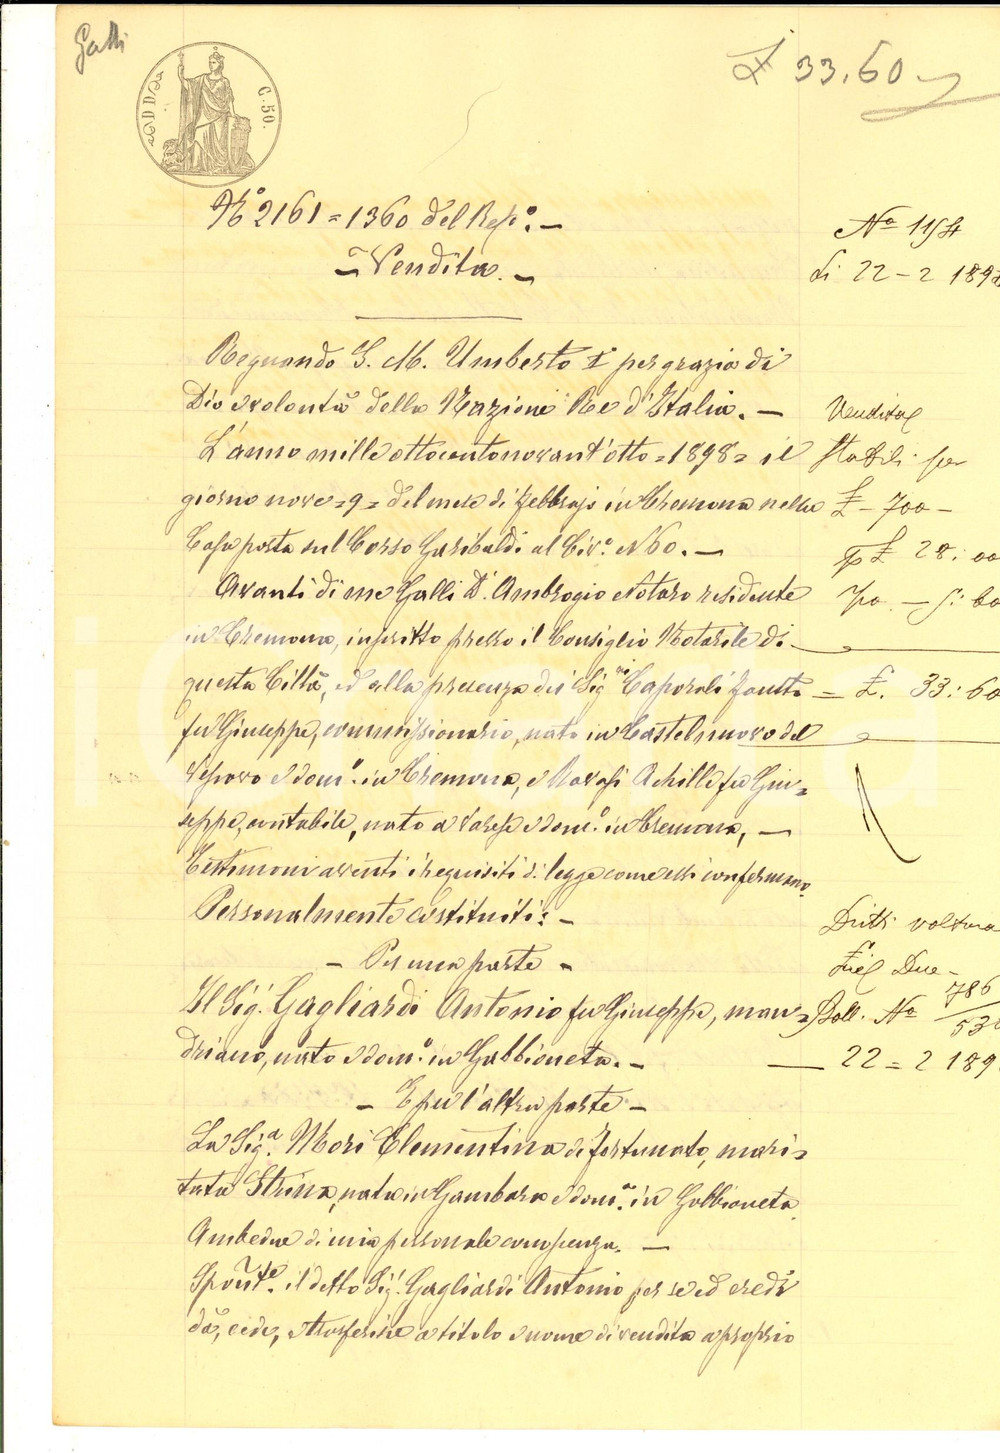 Galli
£ 33.60
DDA
C. 50.
N.° 2161=1360 del Rep.°.—
— Vendita. —
N.° 1154
Li 22-2 189
Regnando S. M. Umberto I° per grazia di
Dio e volontà della Nazione Re d'Italia.—
L'anno mille ottocentonovant'otto =1898= il
giorno nove =9= del mese di Febbrajo in Cremona nella
Casa posta sul Corso Garibaldi al Civ.° N 60.—
Avanti di me Galli D.r Ambrogio Notaro residente
in Cremona, inscritto presso il Consiglio Notarile di
questa Città, ed alla presenza dei Sig.ri Caporali Fausto
fu Giuseppe, commissionario, nato in Castelnuovo del
Vescovo e dom.° in Cremona, e Ravasi Achille fu Giu=
seppe, contabile, nato a Varese e dom.° in Cremona,—
Testimoni aventi i requisiti di legge come essi confermano.
Personalmente costituiti:—
— Per una parte —
Il Sig.r Gagliardi Antonio fu Giuseppe, man=
driano, nato e dom.° in Gabbioneta.—
— E per l'altra parte —
La Sig.a Mori Clementina di Fortunato, mari=
tata Strina, nata in Gambara e dom.a in Gabbioneta
Ambedue di mia personale conoscenza.—
Spont.e il detto Sig.r Gagliardi Antonio per se ed eredi
dà, cede, e trasferisce a titolo e nome di vendita a proprio
Vendita
Stabili per
£ - 700 -
p £ 28:00
70 — 5:60
= £. 33:60
Dritti voltura
Lire Due -
Boll. N.° 786
53
22=2 189